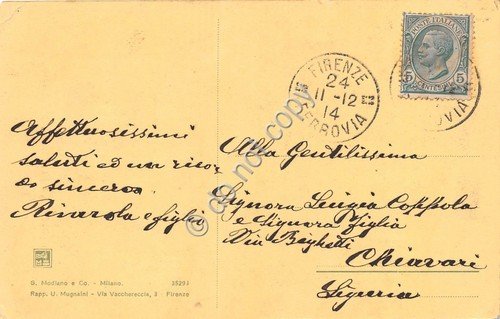 POSTE ITALIANE
5 5
CENTESIMI
FIRENZE
24
11-12
14
FERROVIA
Affettuosissimi
saluti ed un ricor
do sincero
e figlia
Alla Gentilissima
Signora Luigia Coppola
e Signora figlia
Via
Chiavari
Liguria
S. Modiano e Co. - Milano. 35293
Rapp. U. Mugnaini - Via Vacchereccia, 3 Firenze
do not copy